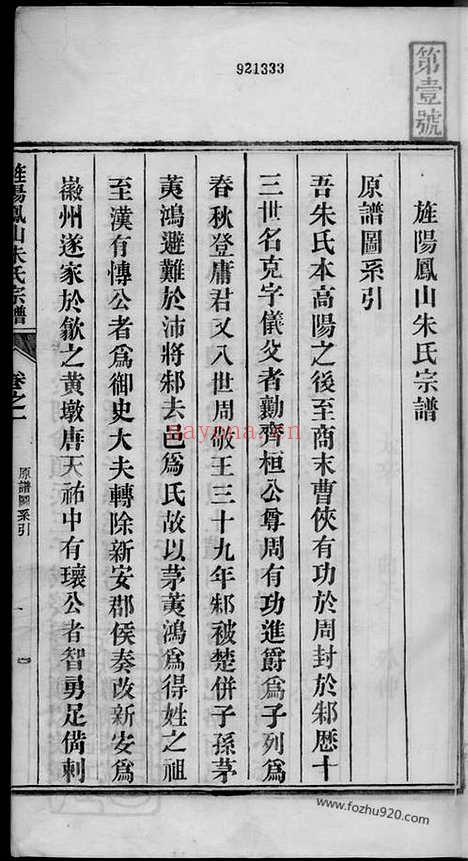 921333
第壹號
旌陽鳳山朱氏宗譜
原譜圖系引
吾朱氏本高陽之後至商末曹俠有功於周封於邾歷十
三世名克字儀父者勤齊桓公尊周有功進爵爲子列爲
春秋登庸君又八世周敬王三十九年邾被楚併子孫茅
荑鴻避難於沛將邾去邑爲氏故以茅荑鴻爲得姓之祖
至漢有愽公者爲御史大夫轉除新安郡侯奏改新安爲
徽州遂家於歙之黄墩唐天祐中有瓌公者智勇足備刺
旌陽鳳山朱氏宗譜
卷之一
原譜圖系引
一
nayona.cn
www.fozhu920.com